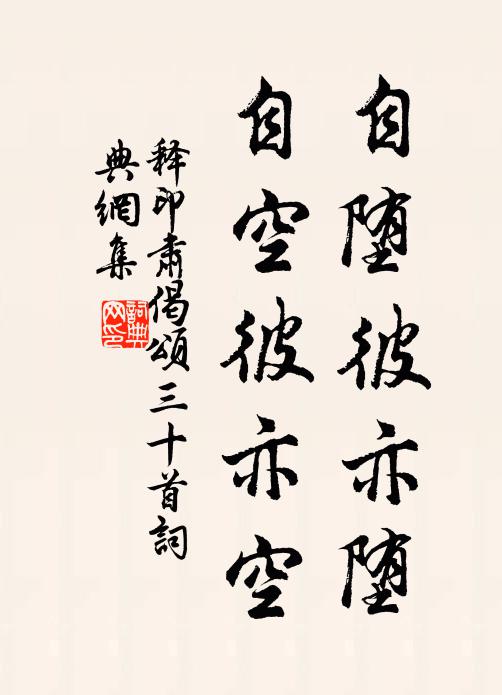 自堕彼亦堕
自空彼亦空
释印肃偈頌三十首詞
典網集
詞典
网印